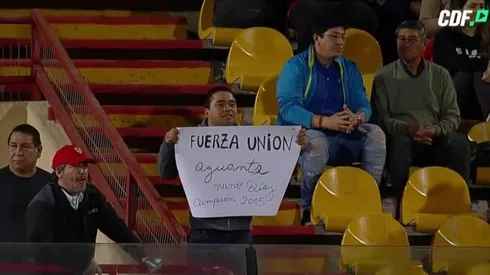 CDF
FUERZA UNION
aguanta
nano Díaz
Campeon 2005